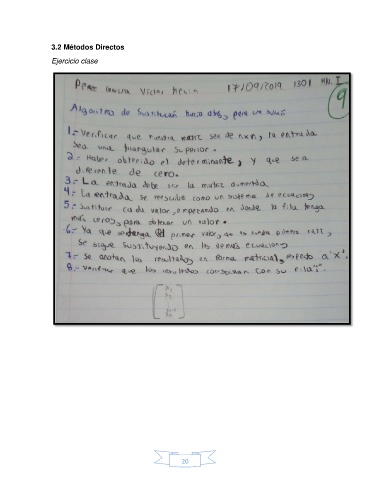 3.2 Métodos Directos
Ejercicio clase
Perez Victor Kevin 17/09/2019 1301 MN. I
9
Algoritmo de Sustitución hacia atrás, para un
1.- Verificar que nuestra matriz sea de nxn, la entrada
sea una triangular superior.
2.- Haber obtenido el determinante, y que sea
diferente de cero.
3.- La entrada debe ser la matriz aumentada
4.- La entrada se reescribe como un sistema de ecuaciones
5.- Sustituir cada valor, empezando en donde la fila tenga
más ceros, para obtener un valor.
6.- Ya que obtenga el primer valor,
se sigue sustituyendo en las demás ecuaciones
7.- Se anotan los resultados en forma matricial, a "x".
8.- Verificar que los resultados coincidan con su fila "i".
x1
x2
20